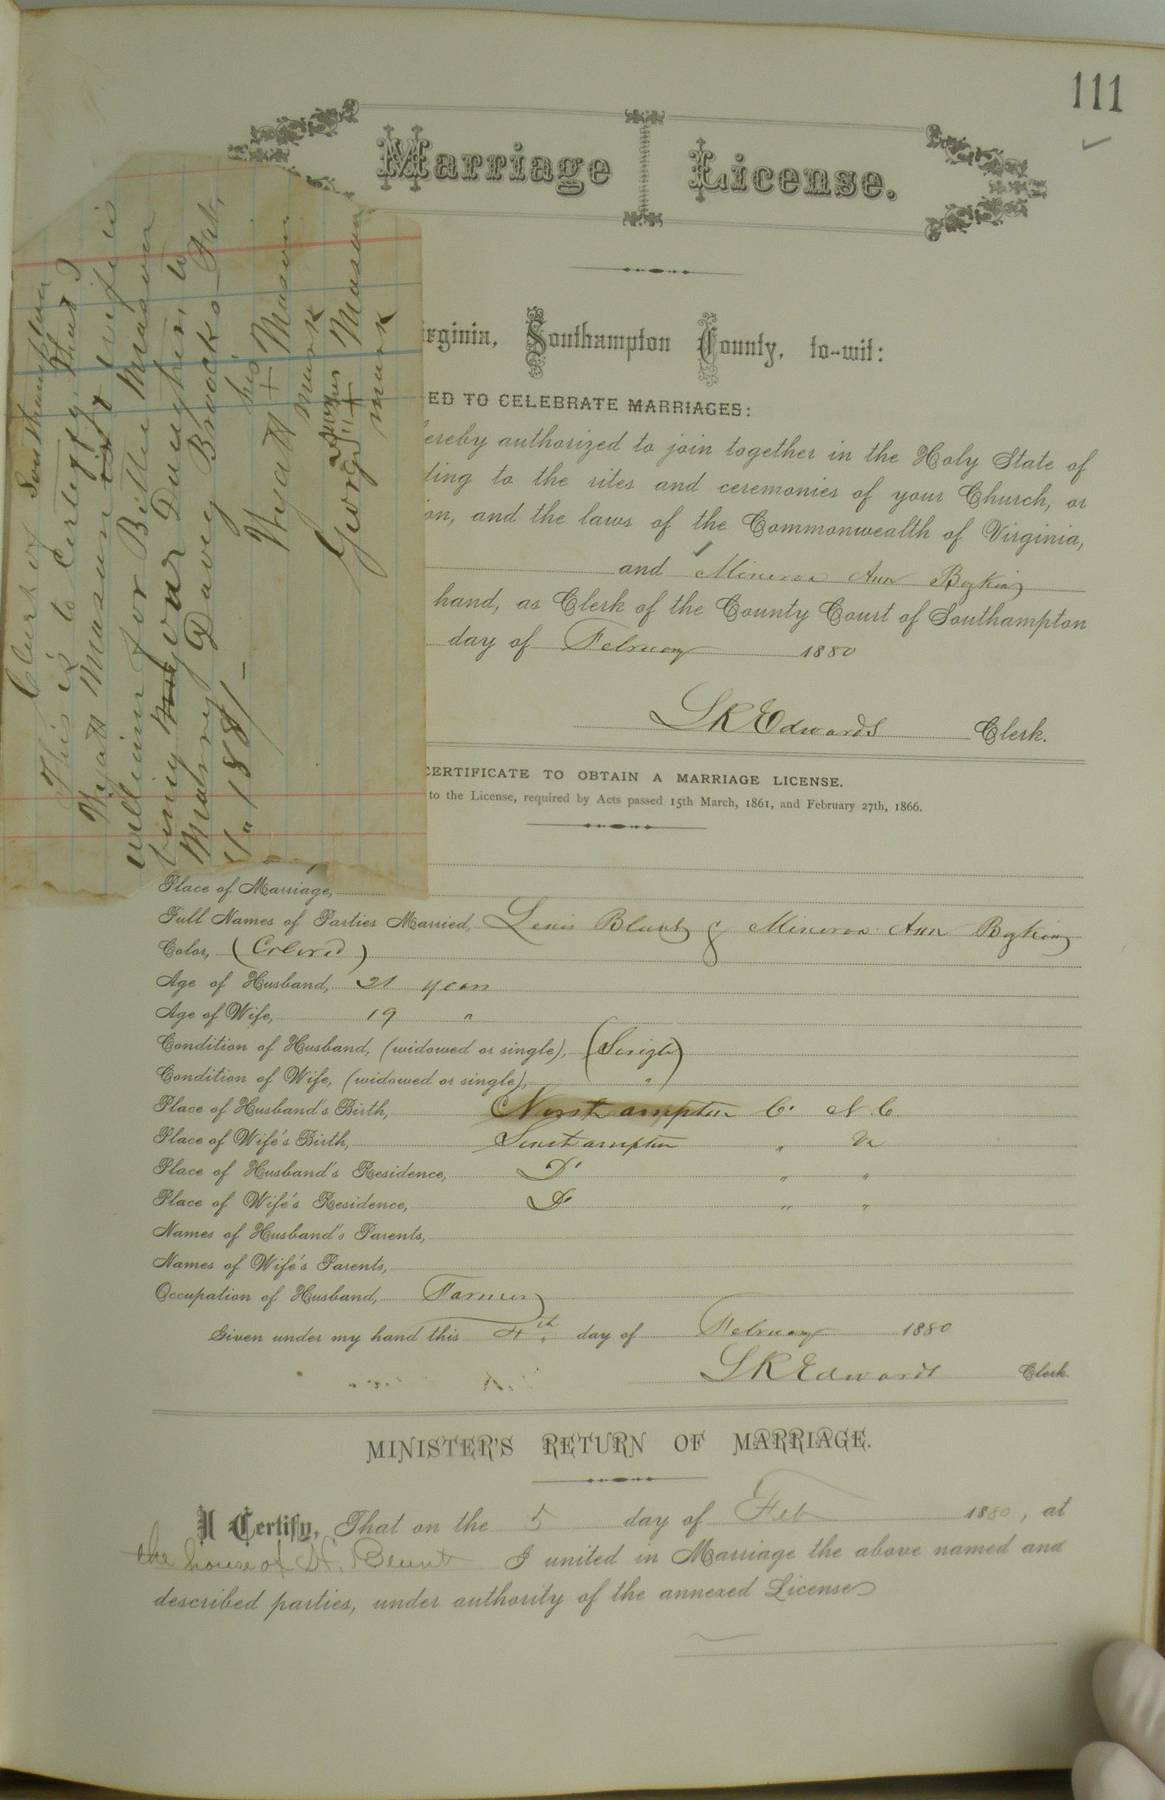 111
Marriage License.
Clerk of Southampton
This is to Certify that I
Wyatt Mason & wife is
willing for Bettie Mason
being our Daughter to
Mary Davey Brooks Feb,
1881
his
Wyatt + Mason
mark
his
George + Mason
mark
irginia, Southampton County, to-wit:
ED TO CELEBRATE MARRIAGES:
ereby authorized to join together in the Holy State of
ding to the rites and ceremonies of your Church, or
on, and the laws of the Commonwealth of Virginia,
and Minerva Ann Boykin
hand, as Clerk of the County Court of Southampton
day of February 1880
L R Edwards Clerk.
CERTIFICATE TO OBTAIN A MARRIAGE LICENSE.
to the License, required by Acts passed 15th March, 1861, and February 27th, 1866.
Place of Marriage,
Full Names of Parties Married, Lewis Blunt & Minerva Ann Boykin
Color, (Colored)
Age of Husband, 21 years
Age of Wife, 19 "
Condition of Husband, (widowed or single), (Single)
Condition of Wife, (widowed or single), "
Place of Husband's Birth, Northampton Co. N.C.
Place of Wife's Birth, Southampton " Va
Place of Husband's Residence, Do " "
Place of Wife's Residence, Do " "
Names of Husband's Parents,
Names of Wife's Parents,
Occupation of Husband, Farmer
Given under my hand this 4th day of February 1880
L R Edwards Clerk.
MINISTER'S RETURN OF MARRIAGE.
I Certify, That on the 5 day of Feb 1880, at
the house of H. Blunt I united in Marriage the above named and
described parties, under authority of the annexed License